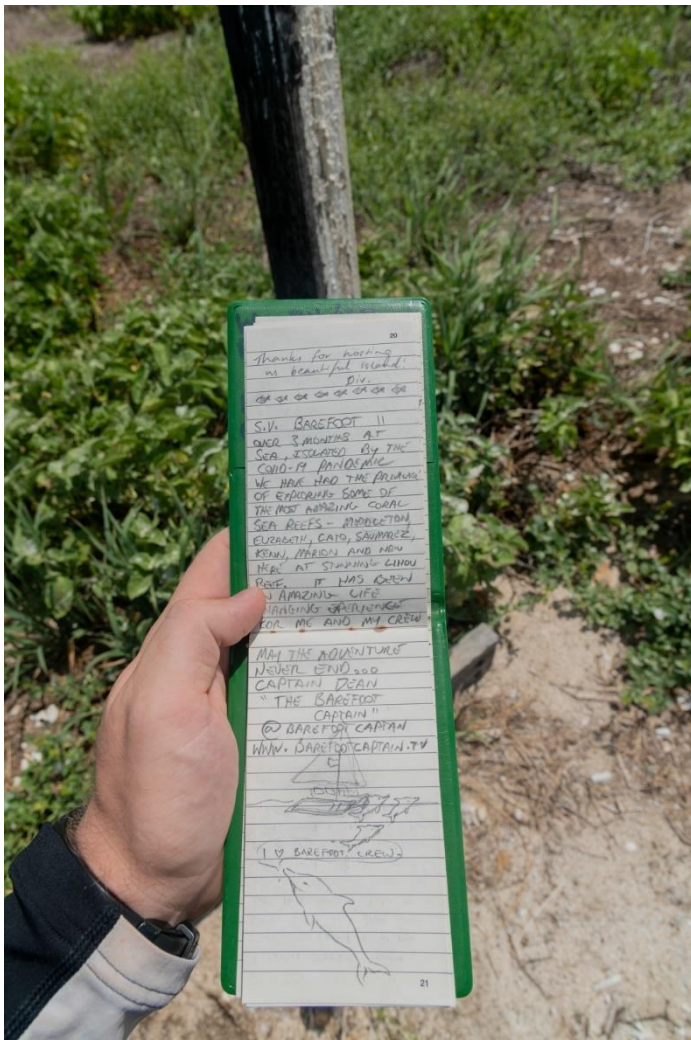 20
Thanks for hosting
beautiful island.
S.V. BAREFOOT !!
OVER 3 MONTHS AT
SEA, ISOLATED BY THE
COVID-19 PANDEMIC
WE HAVE HAD THE PRIVILAGE
OF EXPLORING SOME OF
THE MOST AMAZING CORAL
SEA REEFS - MIDDLETON,
ELIZABETH, CATO, SAUMAREZ,
KENN, MARION AND NOW
HERE AT STUNNING LIHOU
REEF. IT HAS BEEN
AN AMAZING LIFE
CHANGING EXPERIENCE
FOR ME AND MY CREW
MAY THE ADVENTURE
NEVER END...
CAPTAIN DEAN
"THE BAREFOOT
CAPTAIN"
@ BAREFOOT CAPTAIN
WWW. BAREFOOTCAPTAIN.TV
I ♡ BAREFOOT CREW
21